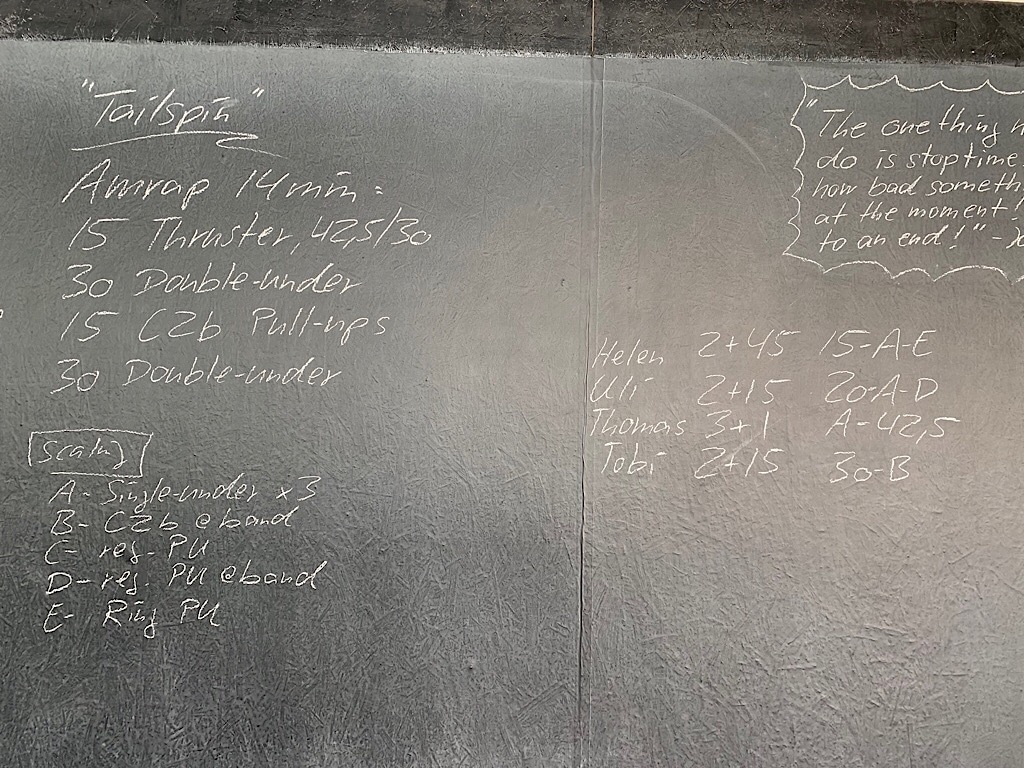 "Tailspin"
Amrap 14min:
15 Thruster, 42,5/30
30 Double-under
15 C2b Pull-ups
30 Double-under
scaling
A- Single-under x3
B- C2b @band
C- reg. PU
D- reg. PU @band
E- Ring PU
"The one thing
do is stop time
how bad someth
at the moment!
to an end!" -
Helen 2+45 15-A-E
Uli 2+15 20-A-D
Thomas 3+1 A-42,5
Tobi 2+15 30-B